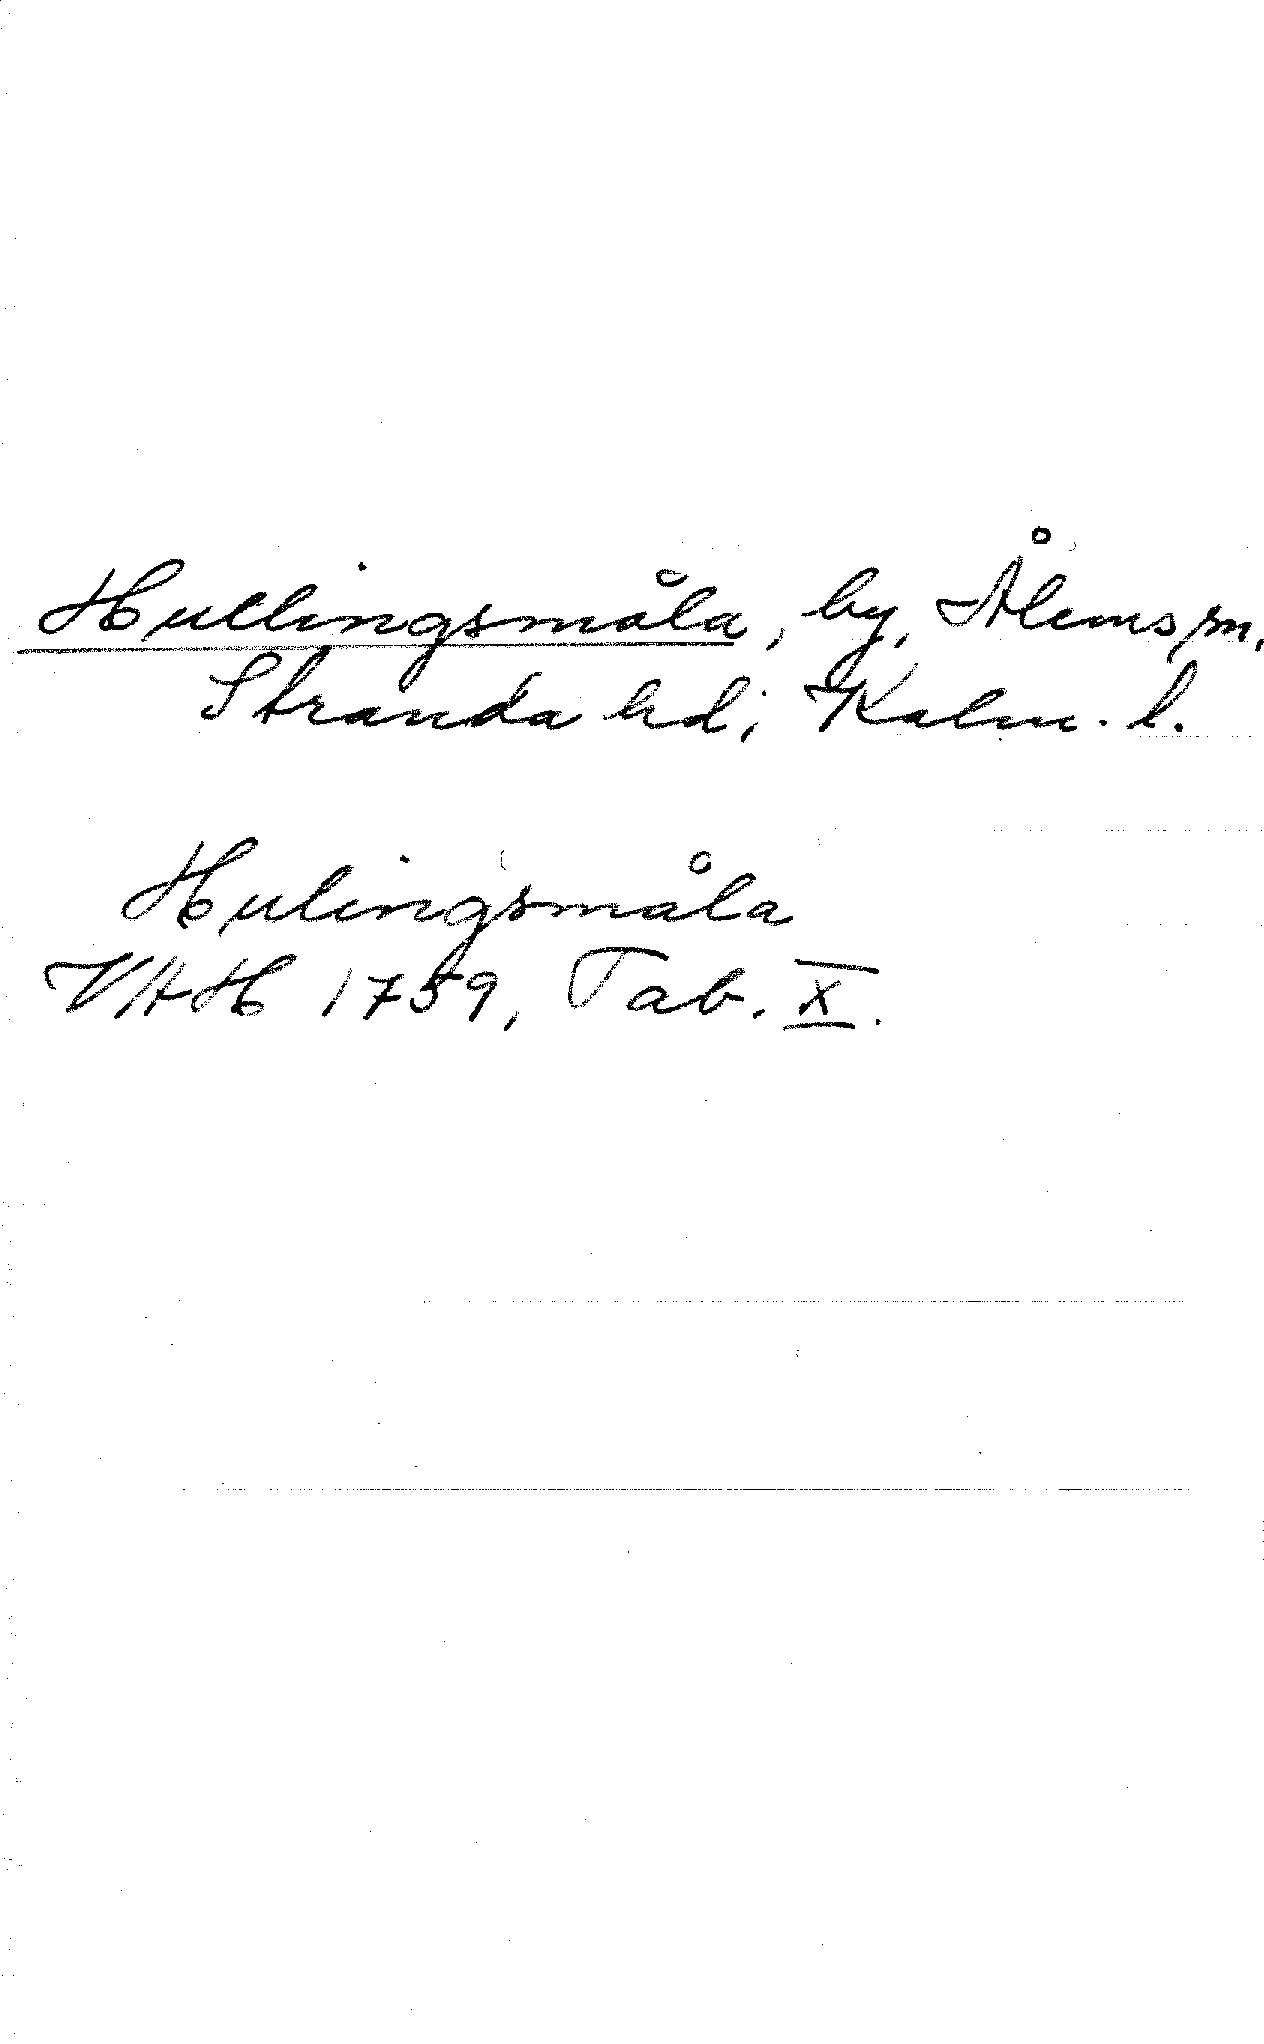 Hullingsmåla, by, Ålems sn,
Stranda hd, Kalm. l.
Hulingsmåla
VAH 1759, Tab. X.